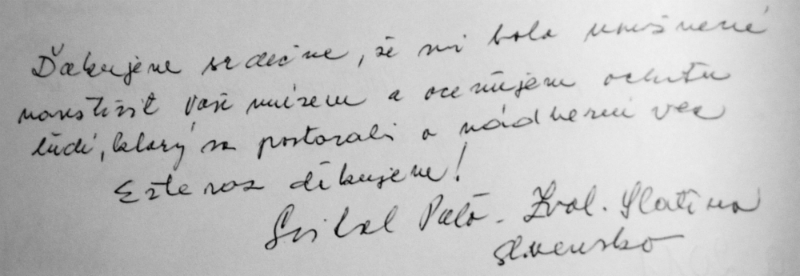 Ďakujeme srdečne, že mi bolo umožnené
navštíviť Vaše múzeum a oceňujem ochotu
ľudí, ktorý sa postarali o nádhernú vec
Ešte raz děkujeme!
Palo - Zvol. Slatina
Slovensko